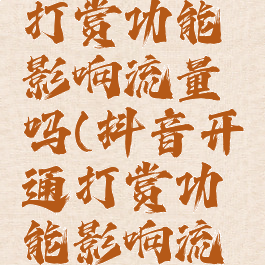 打赏功能
影响流量
吗(抖音开
通打赏功
能影响流